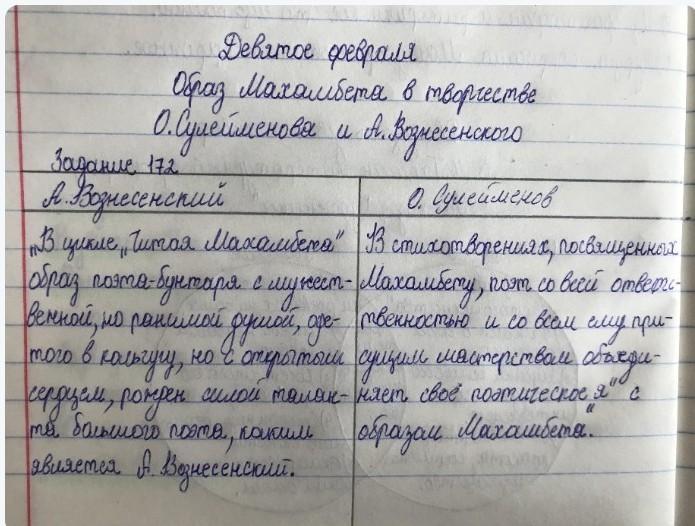 Девятое февраля
Образ Махамбета в творчестве
О.Сулейменова и А.Вознесенского
Задание 172
А.Вознесенский
„В цикле „Читая Махамбета"
образ поэта-бунтаря с мужест-
венной, но ранимой душой, оде-
того в кольчугу, но с открытым
сердцем, рожден силой талан-
та большого поэта, каким
является А. Вознесенский.
О. Сулейменов
В стихотворениях, посвященных
Махамбету, поэт со всей ответс-
твенностью и со всем ему при-
сущим мастерством объеди-
няет своё поэтическое „я" с
образом Махамбета."